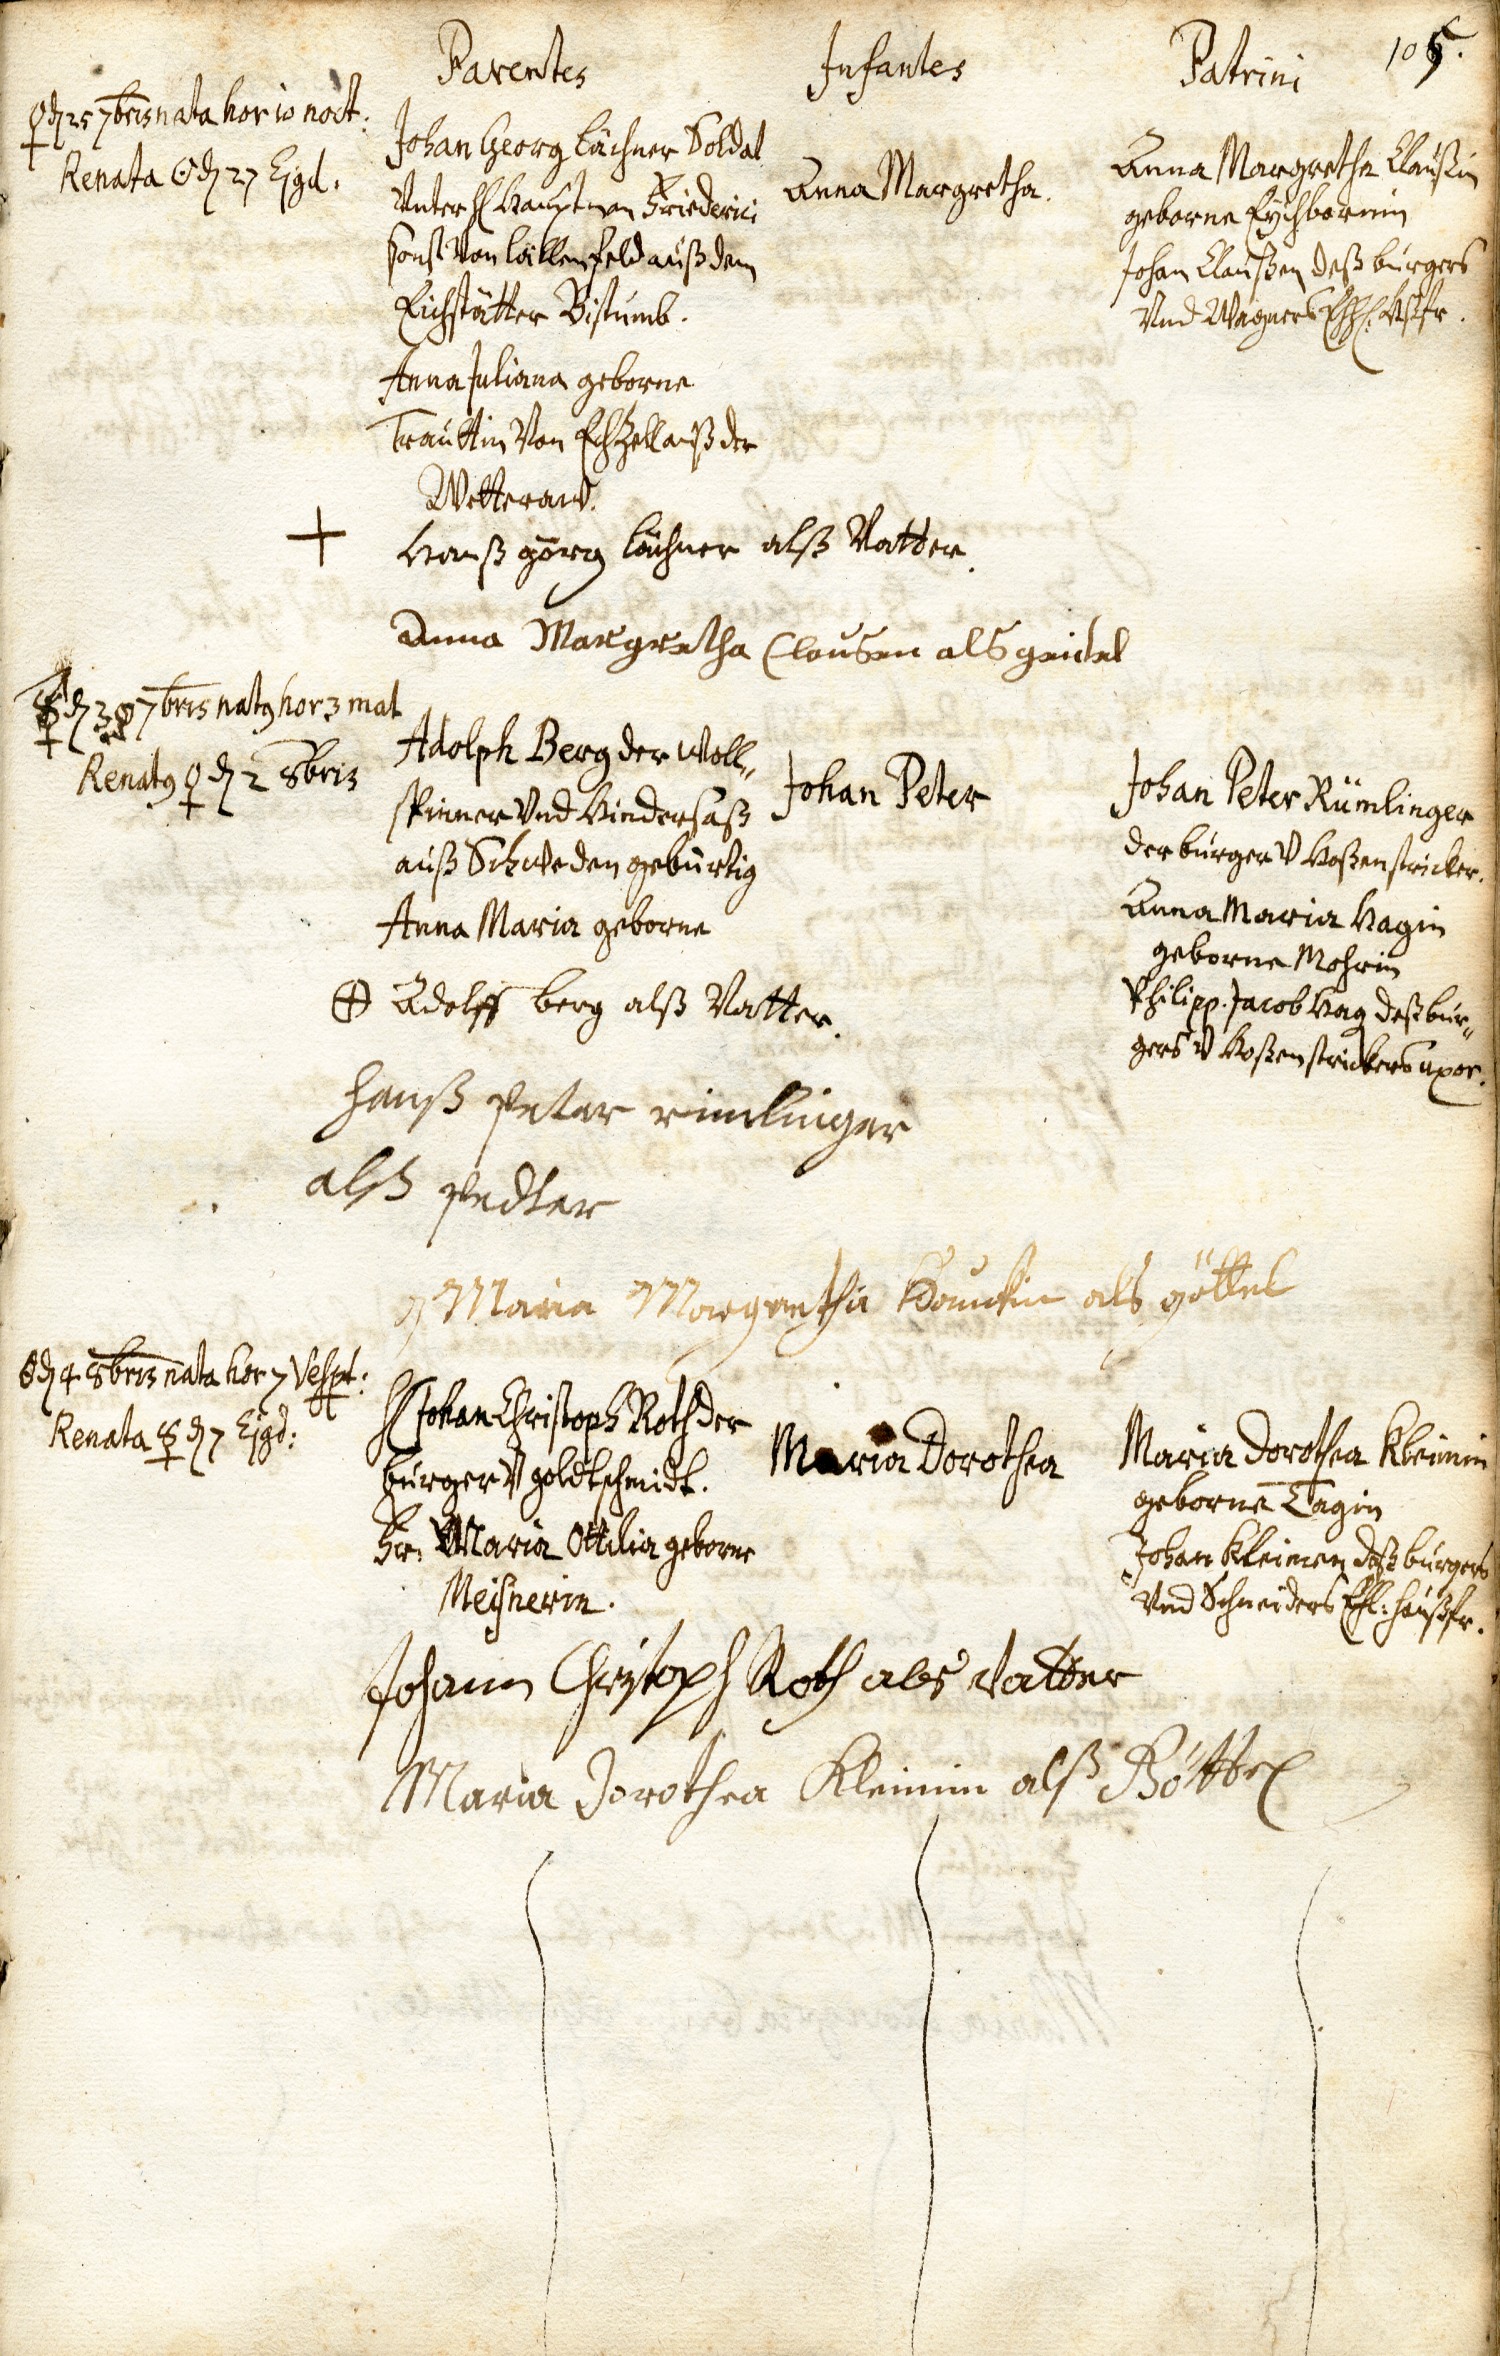 Parentes Infantes Patrini 105.
♀ d 25 7bris nata hor 10 noct:
Renata ☉ d 27 Ejgd.
Johan Georg Lächner Soldat
Unter H Hauptman Friederici
sonst Von auß dem
Eichstätter Bistumb.
Anna Juliana geborne
Trauttin Von Echzell auß der
Wetteraw.
Anna Margretha.
Anna Margretha Claußin
geborne Eychbornin
Johan Claußen deß burgers
Vnd Wagners Ehl: Hßfr.
+ Hanß görg Lächner alß Vatter.
Anna Margretha Clausen als
d 30 7bris natg hor 3 mat
Renatg ♀ d 2 8bris
Adolph Berg der Woll„
spinner Vnd Hindersaß
auß Schweden gebürtig
Anna Maria geborne
Johan Peter
Johan Peter Rümlinger
der burger V Hoßenstricker.
Anna Maria Hagin
geborne Mohrin
Philipp Jacob Hag deß bur„
gers V Hoßenstrickers uxor.
⊕ Adolff berg alß Vatter.
hanß Peter rimlinger
alß
Maria Margretha als göttel
d 4 8bris nata hor 7 Vespt:
Renata ☿ d 7 Ejgd:
H Johan Christoph Roth der
burger V goldtschmidt.
Fr: Maria Ottilia geborne
Meisnerin.
Maria Dorothea
Maria Dorothea Kleinin
geborne Tagin
Johan Kleinen deß burgers
Vnd Schneiders Ehl: haußfr.
Johann Christoph Roth als Vatter
Maria Dorothea Kleinin alß Göttel